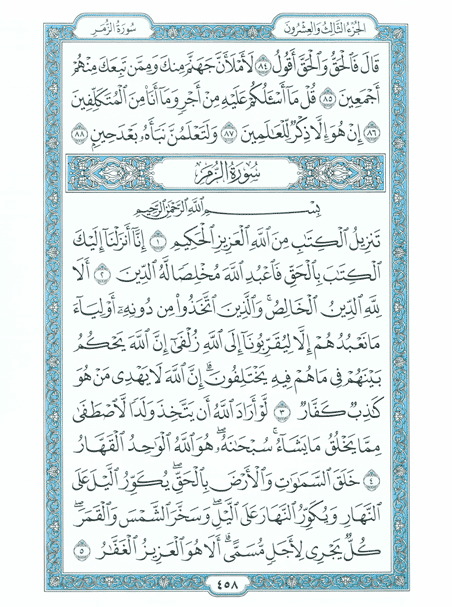 سُورَةُ الزُّمَرِ الجُزْءُ الثَّالِثُ وَالعِشْرُونَ
قَالَ فَالْحَقُّ وَالْحَقَّ أَقُولُ ٨٤ لَأَمْلَأَنَّ جَهَنَّمَ مِنكَ وَمِمَّن تَبِعَكَ مِنْهُمْ
أَجْمَعِينَ ٨٥ قُلْ مَآ أَسْـَٔلُكُمْ عَلَيْهِ مِنْ أَجْرٍ وَمَآ أَنَا۠ مِنَ ٱلْمُتَكَلِّفِينَ
٨٦ إِنْ هُوَ إِلَّا ذِكْرٌ لِّلْعَٰلَمِينَ ٨٧ وَلَتَعْلَمُنَّ نَبَأَهُۥ بَعْدَ حِينٍۭ ٨٨
سُورَةُ الزُّمَرِ
بِسْمِ ٱللَّهِ ٱلرَّحْمَٰنِ ٱلرَّحِيمِ
تَنزِيلُ ٱلْكِتَٰبِ مِنَ ٱللَّهِ ٱلْعَزِيزِ ٱلْحَكِيمِ ١ إِنَّآ أَنزَلْنَآ إِلَيْكَ
ٱلْكِتَٰبَ بِٱلْحَقِّ فَٱعْبُدِ ٱللَّهَ مُخْلِصًا لَّهُ ٱلدِّينَ ٢ أَلَا
لِلَّهِ ٱلدِّينُ ٱلْخَالِصُ ۚ وَٱلَّذِينَ ٱتَّخَذُوا۟ مِن دُونِهِۦٓ أَوْلِيَآءَ
مَا نَعْبُدُهُمْ إِلَّا لِيُقَرِّبُونَآ إِلَى ٱللَّهِ زُلْفَىٰٓ إِنَّ ٱللَّهَ يَحْكُمُ
بَيْنَهُمْ فِى مَا هُمْ فِيهِ يَخْتَلِفُونَ ۗ إِنَّ ٱللَّهَ لَا يَهْدِى مَنْ هُوَ
كَٰذِبٌ كَفَّارٌ ٣ لَّوْ أَرَادَ ٱللَّهُ أَن يَتَّخِذَ وَلَدًا لَّٱصْطَفَىٰ
مِمَّا يَخْلُقُ مَا يَشَآءُ ۚ سُبْحَٰنَهُۥ ۖ هُوَ ٱللَّهُ ٱلْوَٰحِدُ ٱلْقَهَّارُ
٤ خَلَقَ ٱلسَّمَٰوَٰتِ وَٱلْأَرْضَ بِٱلْحَقِّ ۖ يُكَوِّرُ ٱلَّيْلَ عَلَى
ٱلنَّهَارِ وَيُكَوِّرُ ٱلنَّهَارَ عَلَى ٱلَّيْلِ ۖ وَسَخَّرَ ٱلشَّمْسَ وَٱلْقَمَرَ ۖ
كُلٌّ يَجْرِى لِأَجَلٍ مُّسَمًّى ۗ أَلَا هُوَ ٱلْعَزِيزُ ٱلْغَفَّٰرُ ٥
٤٥٨